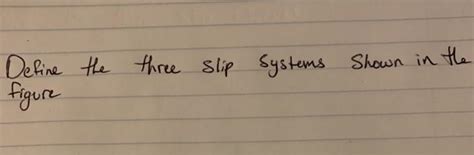 Define the three slip systems shown in the
figure